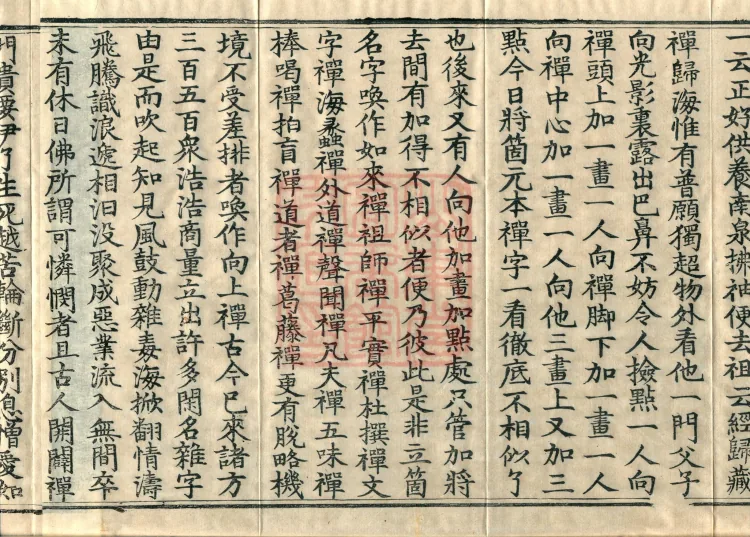 一云正好供養南泉拂袖便去祖云經歸藏
禪歸海惟有普願獨超物外看他一門父子
向光影裏露出巴鼻不妨令人撿點一人向
禪頭上加一畫一人向禪脚下加一畫一人
向禪中心加一畫一人向他三畫上又加三
點今日將箇元本禪字一看徹底不相似了
也後來又有人向他加畫加點處只管加將
去間有加得不相似者便乃彼此是非立箇
名字喚作如來禪祖師禪平實禪杜撰禪文
字禪海蠡禪外道禪聲聞禪凡夫禪五味禪
棒喝禪拍盲禪道者禪葛藤禪更有脫略機
境不受差排者喚作向上禪古今已來諸方
三百五百衆浩浩商量立出許多閑名雜字
由是而吹起知見風鼓動雜毒海掀翻情濤
飛騰識浪遞相汩没聚成惡業流入無間卒
未有休日佛所謂可憐憫者且古人開闢禪
門貴要伊了生死越苦輪斷分別息憎愛如